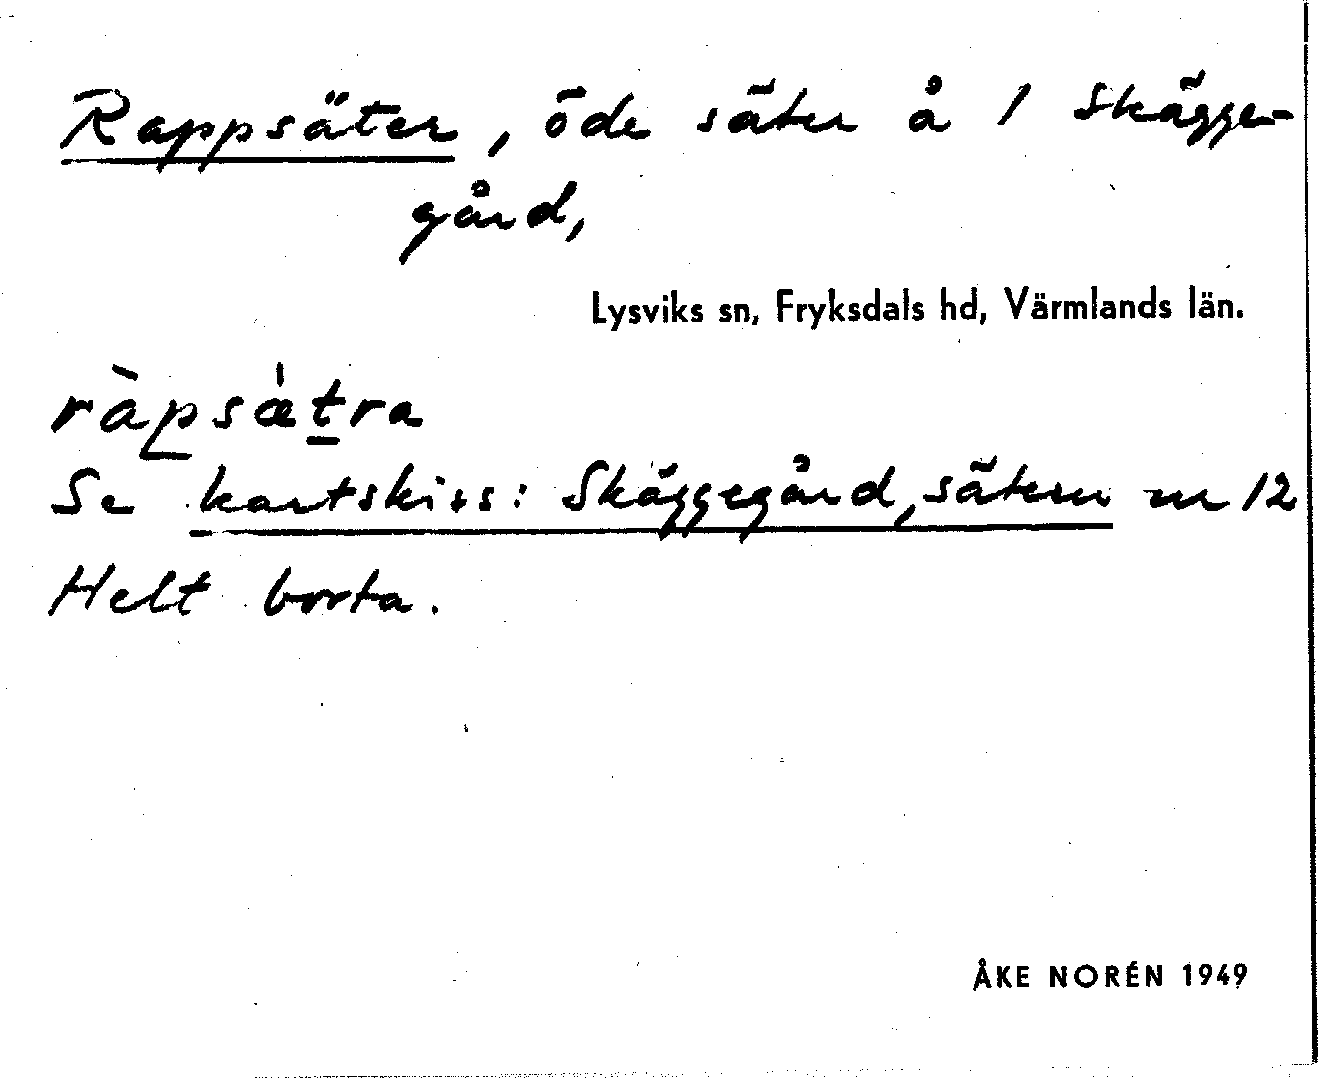 Rappsäter, öde säter å 1 Skägge-
gård,
Lysviks sn, Fryksdals hd, Värmlands län.
ràpsætra
Se kartskiss: Skäggegård, sätern nr 12
Helt borta.
ÅKE NORÉN 1949